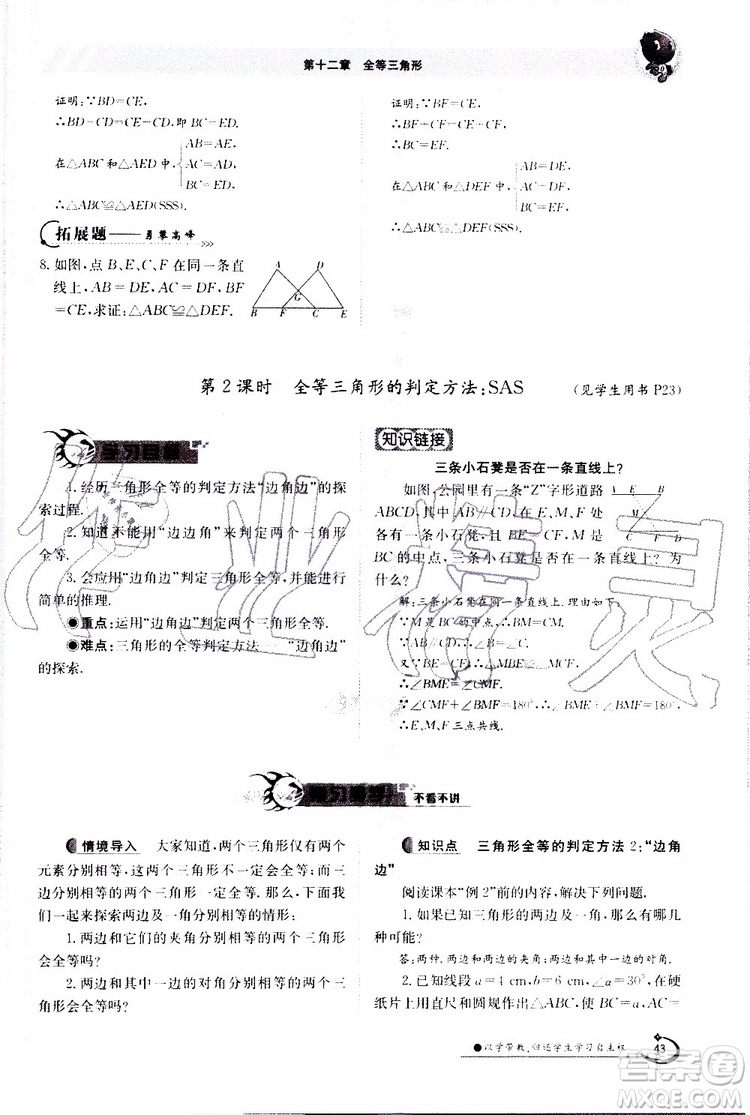 第十二章 全等三角形
证明:∵BD=CE,
∴BD-CD=CE-CD,即 BC=ED.
在△ABC和△AED中,
AB=AE,
AC=AD,
BC=ED,
∴△ABC≌△AED(SSS).
拓展题——勇攀高峰
8.如图,点 B、E、C、F 在同一条直
线上,AB=DE,AC=DF,BF
=CE,求证:△ABC≌△DEF.
A D
G
B F C E
证明:∵BF=CE,
∴BF+CF=CE+CF,
∴BC=EF.
在△ABC和△DEF中,
AB=DE,
AC=DF,
BC=EF,
∴△ABC≌△DEF(SSS).
第2课时 全等三角形的判定方法:SAS (见学生用书 P23)
学习目标
1.经历三角形全等的判定方法“边角边”的探
索过程.
2.知道不能用“边边角”来判定两个三角形
全等.
3.会应用“边角边”判定三角形全等,并能进行
简单的推理.
●重点:运用“边角边”判定两个三角形全等.
●难点:三角形的全等判定方法——“边角边”
的探索.
知识链接
三条小石凳是否在一条直线上?
如图,公园里有一条“Z”字形道路
ABCD,其中 AB∥CD,在 E,M,F 处
各有一条小石凳,且 BE=CF,M 是
BC 的中点,三条小石凳是否在一条直线上?为
什么?
解:三条小石凳在同一条直线上.理由如下:
∵M 是 BC 的中点,∴BM=CM.
又∵BE=CF,∴△MBE≌△MCF.
∴∠BME=∠CMF.
∴E,M,F 三点共线.
不看不讲
情境导入 大家知道,两个三角形仅有两个
元素分别相等,这两个三角形不会全等,而三
边分别相等的两个三角形会全等,下面,我们
一起来探索两边及一角分别相等的情形:
1.两边和它们的夹角分别相等的两个三
角形会全等吗?
2.两边和其中一边的对角分别相等的两个三
角形会全等吗?
知识点 三角形全等的判定方法 2:“边角
边”
阅读课本“例2”前的内容,解决下列问题.
1.如果已知三角形的两边及一角,有哪几
种可能?
答:两种.两边和两边的夹角;两边和一边的对角.
2.已知线段 a=4 cm,b=6 cm,∠α=30°,在硬
纸片上用直尺和圆规作出△ABC,使 BC=a,AC=
●以学带教,归还学生学习自主权
43
作业精灵
答案圈
MXQE.COM